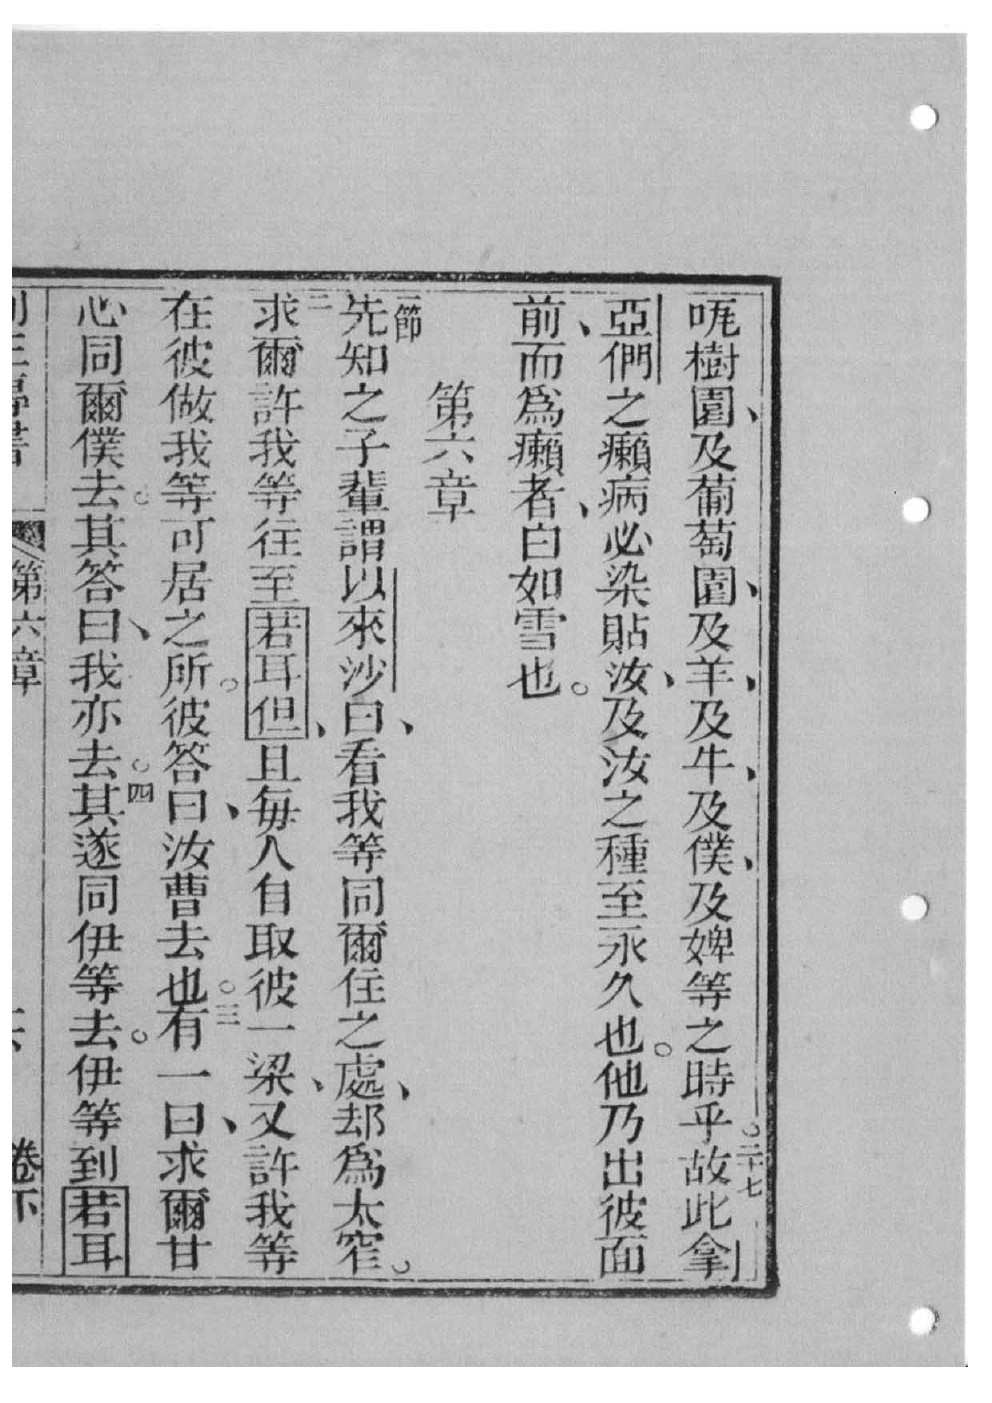 㕭樹園、及葡萄園、及羊、及牛、及僕、及婢等之時乎。二十七故此拿
亞們之癩病必染貼汝、及汝之種至永久也。他乃出彼面
前、而爲癩者、白如雪也。
第六章
一節先知之子輩謂以來沙曰、看我等同爾住之處、却爲太窄。
二求爾許我等往至若耳但、且每人自取彼一梁、又許我等
在彼做我等可居之所。彼答曰、汝曹去也。三有一曰、求爾甘
心同爾僕去。其答曰、我亦去。四其遂同伊等去。伊等到若耳
第六章
卷下